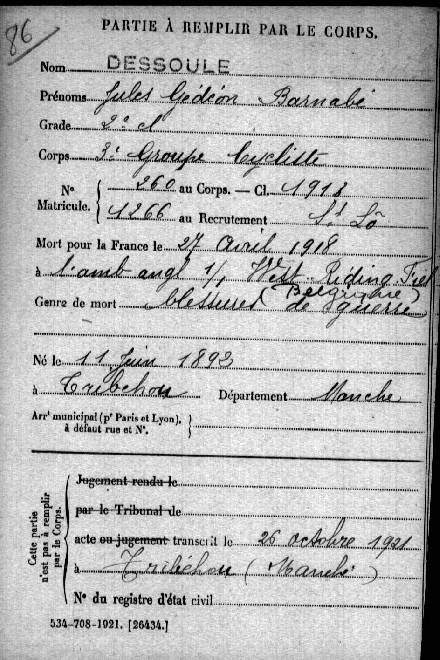 86
PARTIE À REMPLIR PAR LE CORPS.
Nom DESSOULE
Prénoms Jules Gédéon Barnabé
Grade 2e cl
Corps 3e Groupe Cycliste
N° Matricule. { 260 au Corps. — Cl. 1913
1266 au Recrutement St Lô
Mort pour la France le 27 Avril 1918
à l'amb angl 1/1 West Riding Fiel
(Belgique)
Genre de mort blessures de guerre
Né le 11 Juin 1893
à Tribehou Département Manche
Arrt municipal (pr Paris et Lyon), à défaut rue et N°. }
Cette partie n'est pas à remplir par le Corps.
Jugement rendu le
par le Tribunal de
acte ou jugement transcrit le 26 octobre 1921
à Tribéhou (Manche)
N° du registre d'état civil
534-708-1921. [26434.]